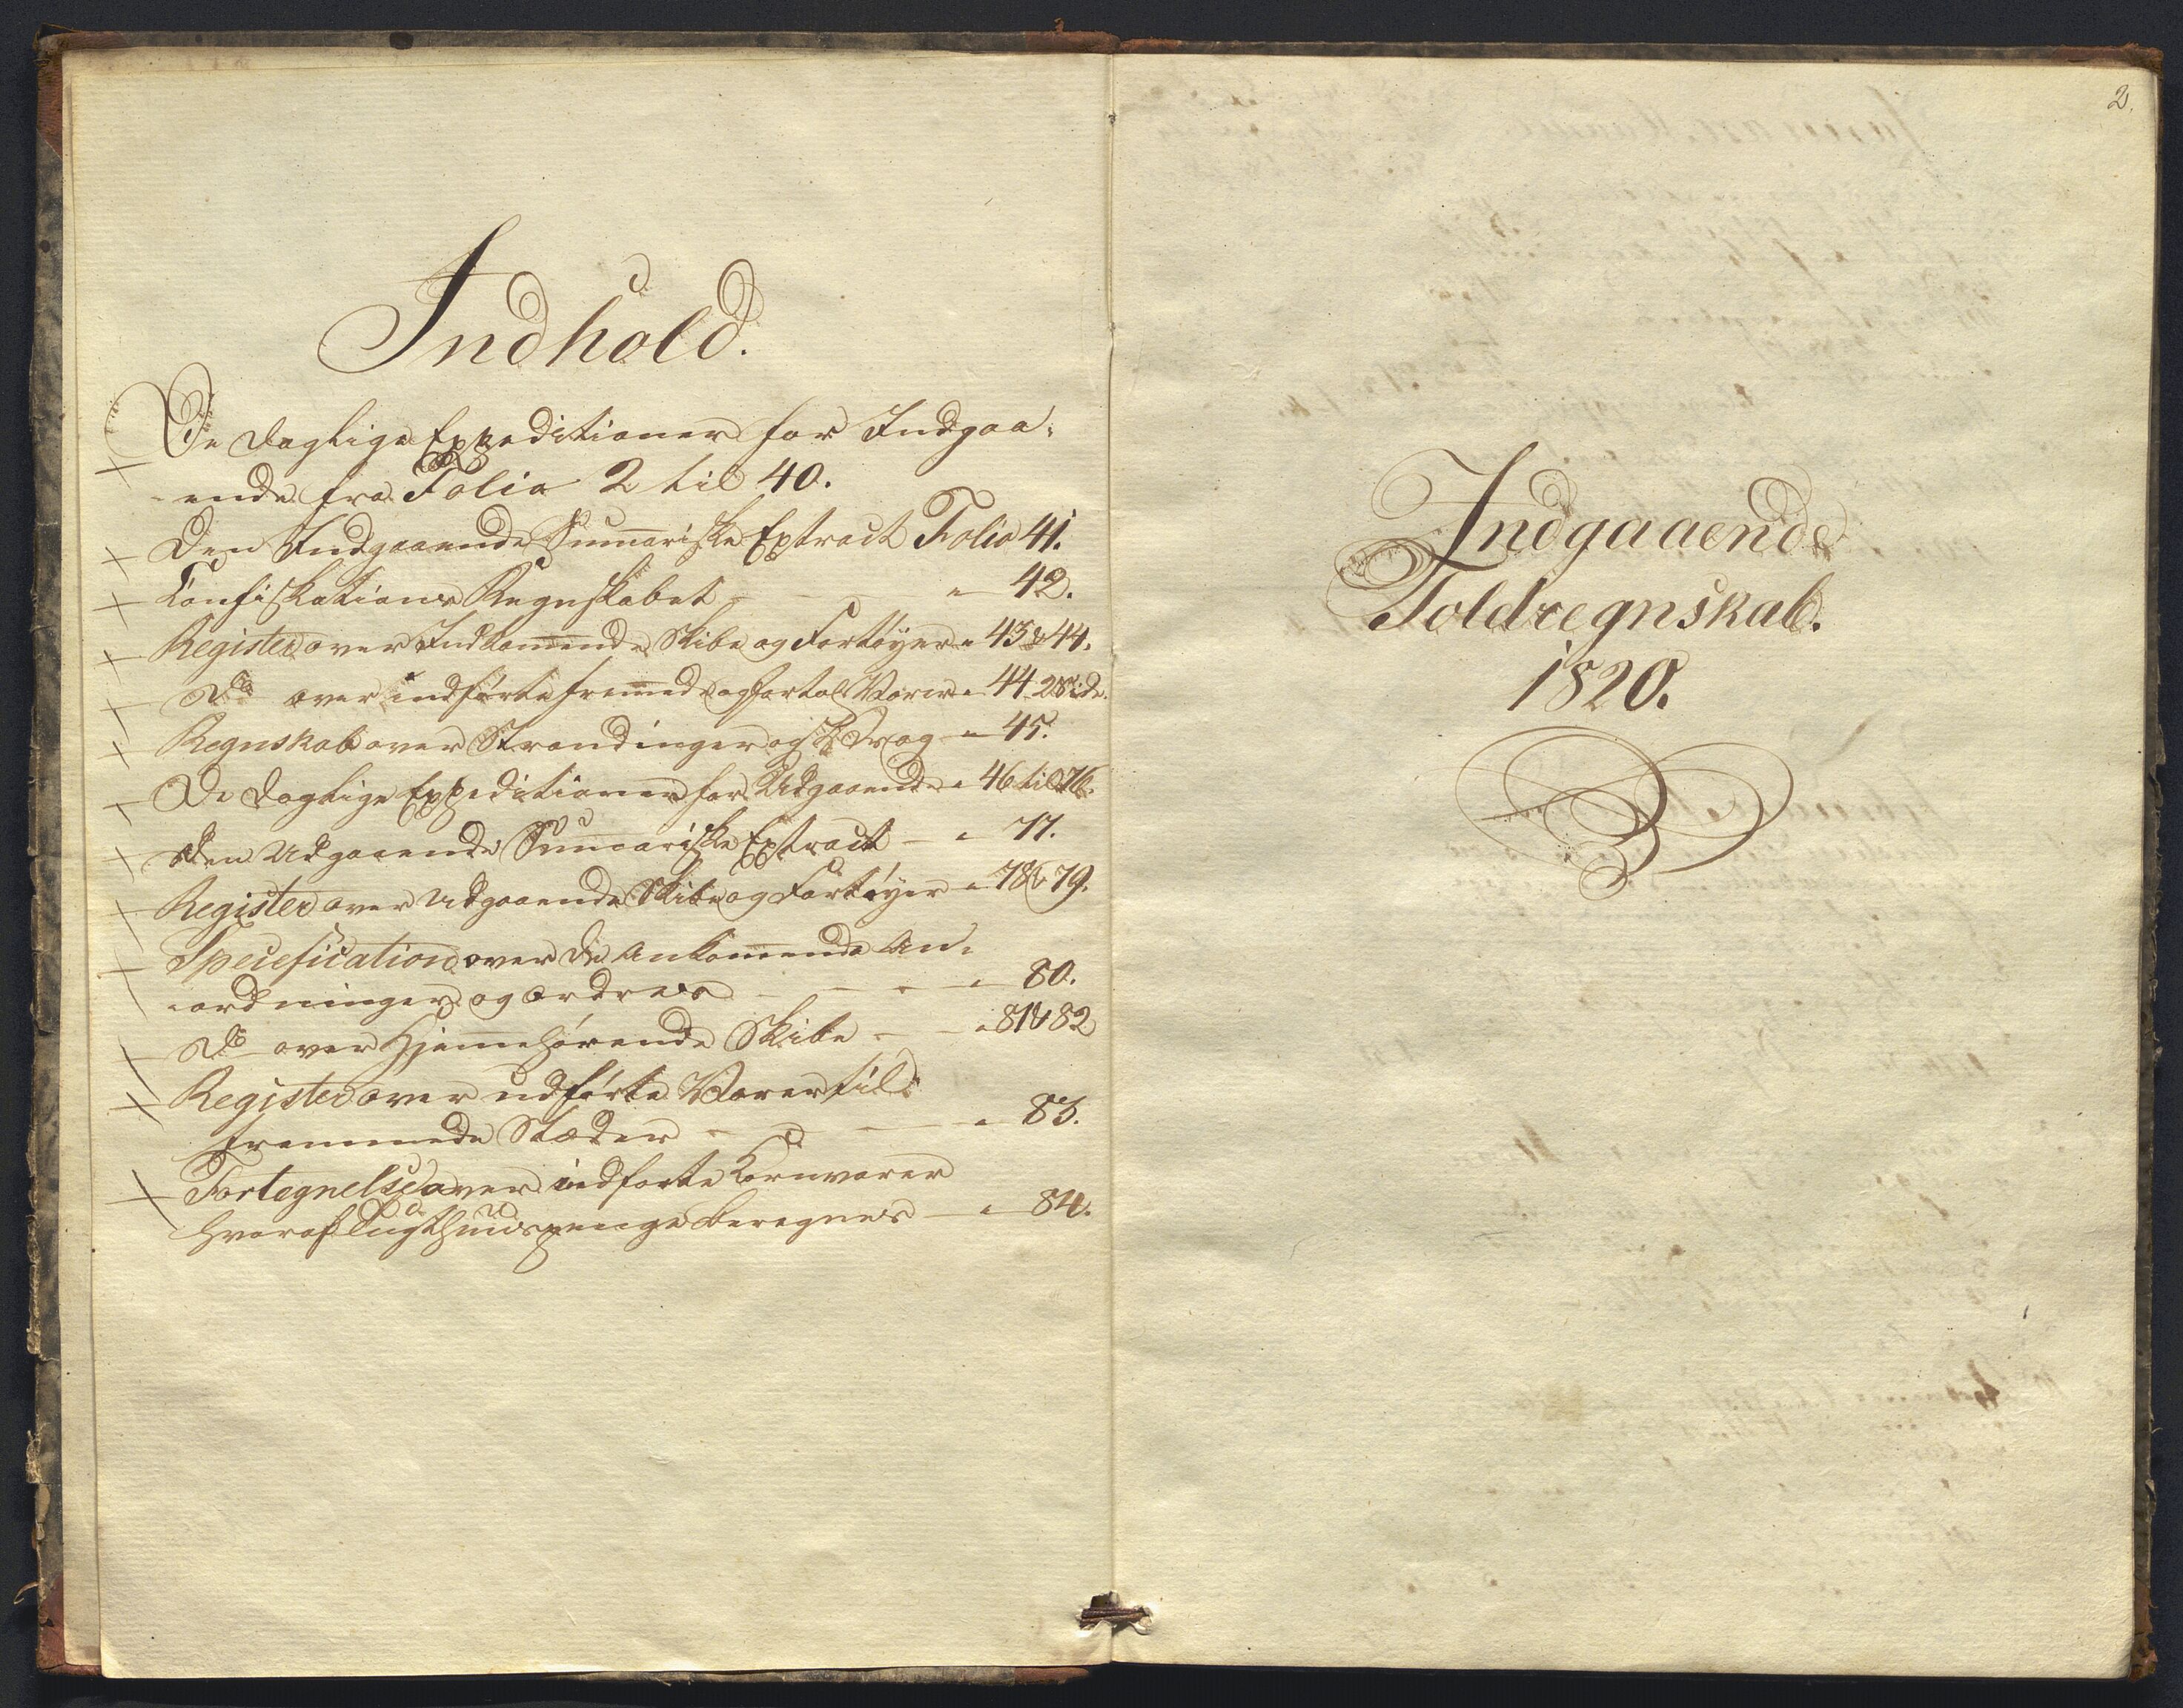 Indhold.
De daglige Expeditioner for Indgaa-
-ende fra Folio 2 til 40.
Den Indgaaende Sum̄ariske Extract Folio 41.
Confiskations Regnskabet - " 42.
Register over Indkom̄ende Skibe og Fartøyer " 43 & 44.
Do over indførte frem̄ede Varer " 44 2 Side.
Regnskab over Strandinger og Vrag " 45.
De daglige Expeditioner for Udgaaende " 46 til 76.
Den Udgaaende Sum̄ariske Extract - " 77.
Register over Udgaaende Skibe og Fartøyer " 78 & 79.
Specification over de Ankom̄ende An-
-ordninger og Ordres - - " 80.
Do over Hjem̄ehørende Skibe - - " 81 & 82
Register over udførte Varer til
fremmede Stæder - - - " 83.
Fortegnelse over indførte Kornvarer
hvoraf Tugthuuspenge beregnes - " 84.
2.
Indgaaende
Toldregnskab.
1820.